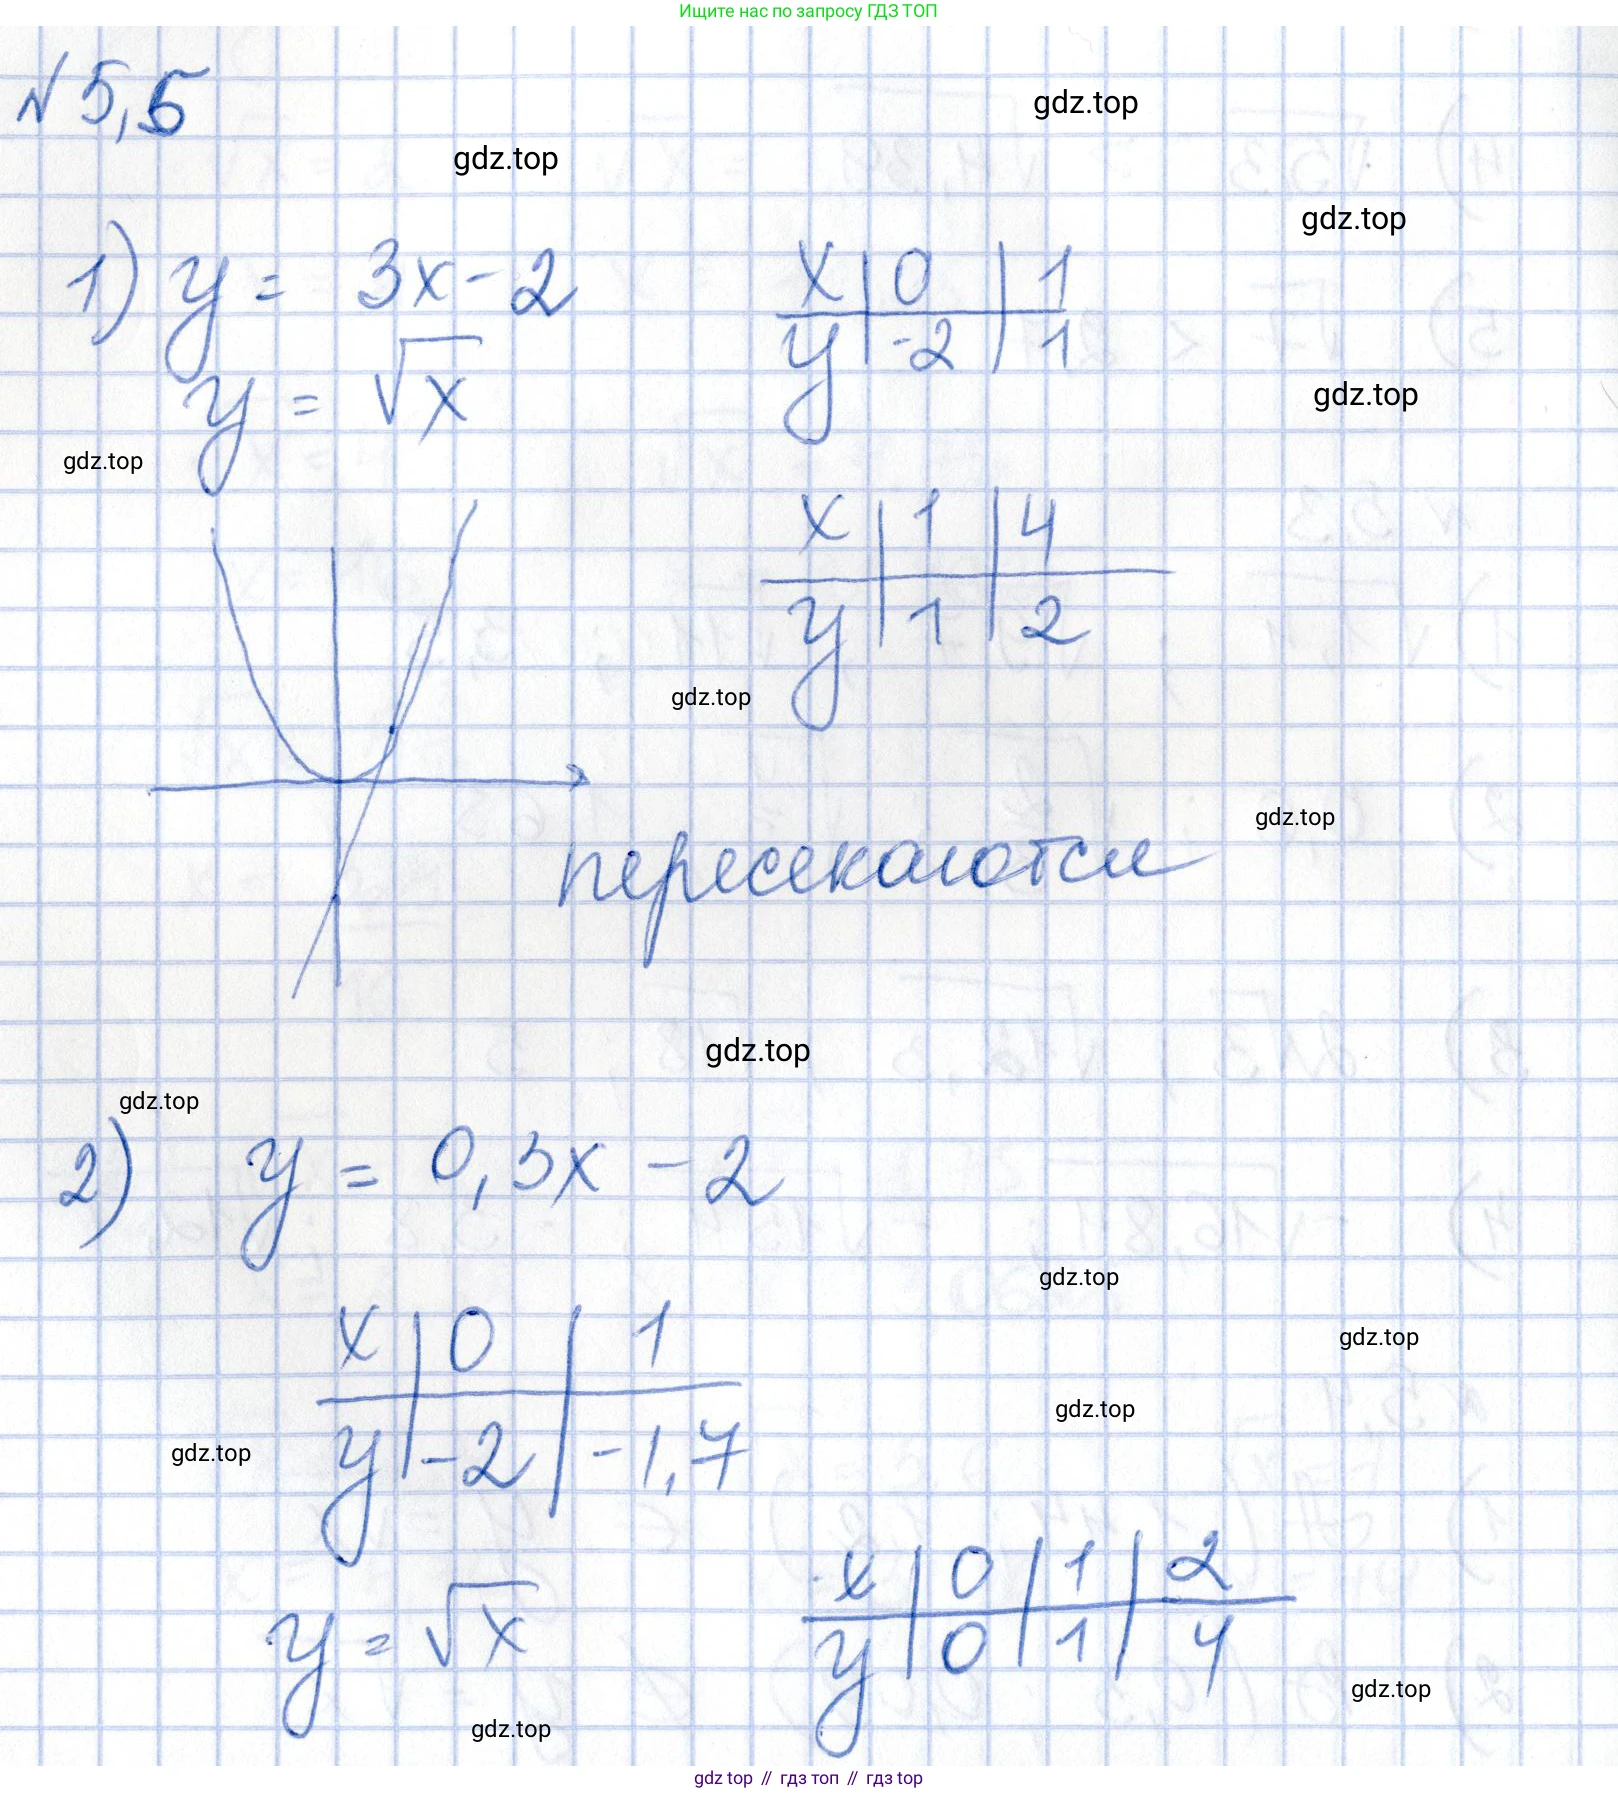 Ищите нас по запросу ГДЗ ТОП
№ 5,5
gdz.top
gdz.top
gdz.top
1) y = 3x - 2
x | 0 | 1
y | -2 | 1
y = √x
gdz.top
gdz.top
x | 1 | 4
y | 1 | 2
gdz.top
gdz.top
пересекаются
gdz.top
gdz.top
2) y = 0,3x - 2
gdz.top
x | 0 | 1
gdz.top
gdz.top
y | -2 | -1,7
gdz.top
x | 0 | 1 | 2
y | 0 | 1 | 4
y = √x
gdz.top
gdz.top
gdz top // гдз топ // гдз top